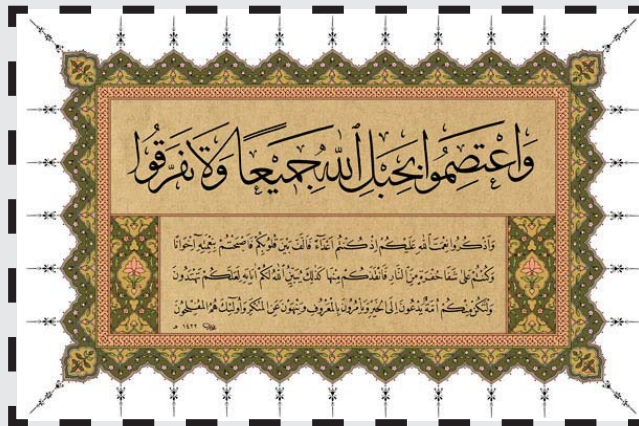 وَاعْتَصِمُوا بِحَبْلِ اللّٰهِ جَمِيْعًا وَلَا تَفَرَّقُوا
وَاذْكُرُوا نِعْمَتَ اللهِ عَلَيْكُمْ اِذْ كُنْتُمْ اَعْدَاءً فَاَلَّفَ بَيْنَ قُلُوبِكُمْ فَاَصْبَحْتُمْ بِنِعْمَتِهِ اِخْوَانًا
وَكُنْتُمْ عَلَى شَفَا حُفْرَةٍ مِنَ النَّارِ فَاَنْقَذَكُمْ مِنْهَا كَذٰلِكَ يُبَيِّنُ اللهُ لَكُمْ اٰيَاتِهِ لَعَلَّكُمْ تَهْتَدُونَ
وَلْتَكُنْ مِنْكُمْ اُمَّةٌ يَدْعُونَ اِلَى الْخَيْرِ وَيَأْمُرُونَ بِالْمَعْرُوفِ وَيَنْهَوْنَ عَنِ الْمُنْكَرِ وَاُولٰئِكَ هُمُ الْمُفْلِحُونَ
١٤٢٢ هـ